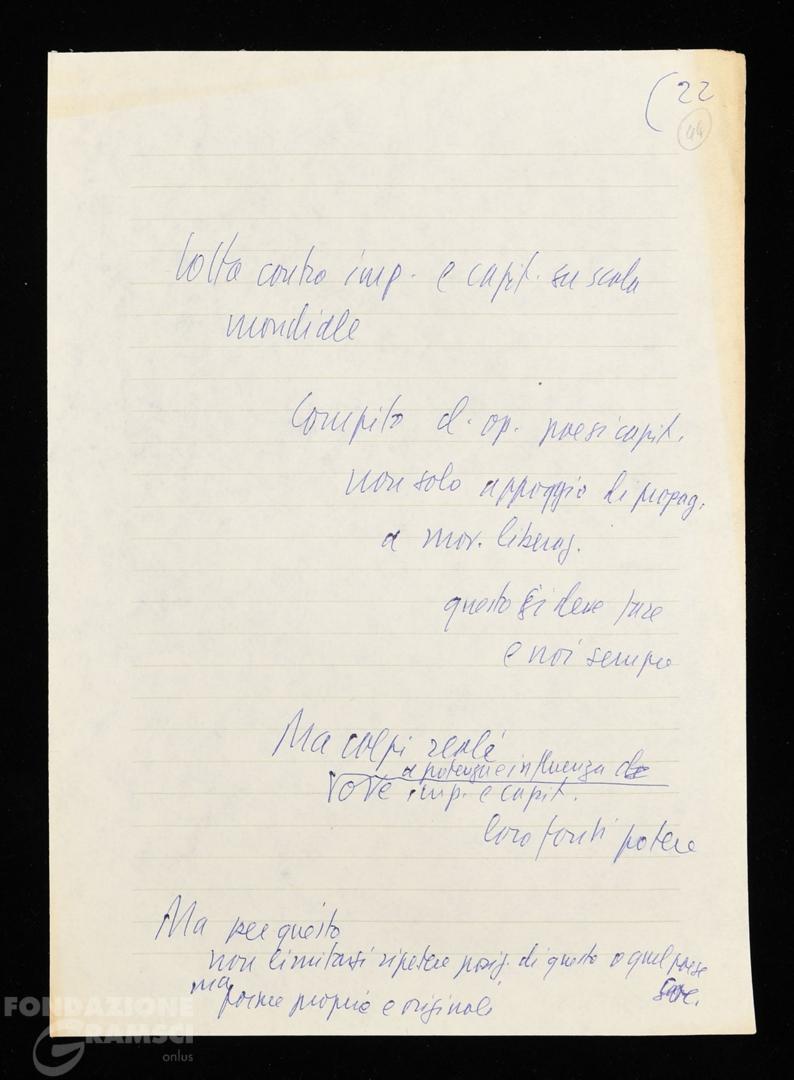 (22
44
lotta contro imp. e capit. su scala
mondiale
Compito d. op. paesi capit.
non solo appoggio di propag.
a mov. liberaz.
questo si deve fare
e noi sempre
Ma colpi reali
a potenza e influenza de
imp. e capit.
loro fonti potere
Ma per questo
non limitarsi ripetere posiz. di questo o quel paese
ma forme proprie e originali
FONDAZIONE
GRAMSCI
onlus